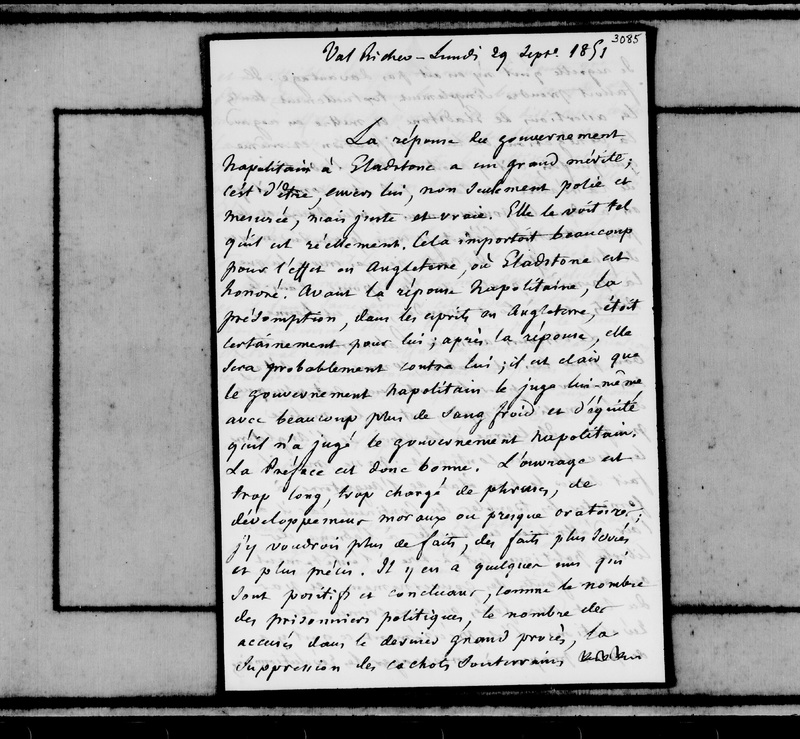 3085
Val Richer – Lundi 29 Septe. 1851
La réponse du gouvernement
Napolitain à Gladstone a un grand mérite ;
c'est d'être, envers lui, non seulement polie et
mesurée, mais juste et vraie. Elle le voit tel
qu'il est réellement. Cela importoit beaucoup
pour l'effet en Angleterre, où Gladstone est
honoré. Avant la réponse Napolitaine, la
présomption, dans les esprits en Angleterre, étoit
certainement pour lui ; après la réponse, elle
sera probablement contre lui ; il est clair que
le gouvernement Napolitain le juge lui-même
avec beaucoup plus de sang froid et d'équité
qu'il n'a jugé le gouvernement Napolitain.
La Préface est donc bonne. L'ouvrage est
trop long, trop chargé de phrases, de
développemens moraux ou presque oratoires ;
j'y voudrois plus de faits, des faits plus serrés
et plus précis. Il y en a quelques uns qui
sont positifs et concluans, comme le nombre
des prisonniers politiques, le nombre des
accusés dans le dernier grand procès, la
suppression des cachots souterrains